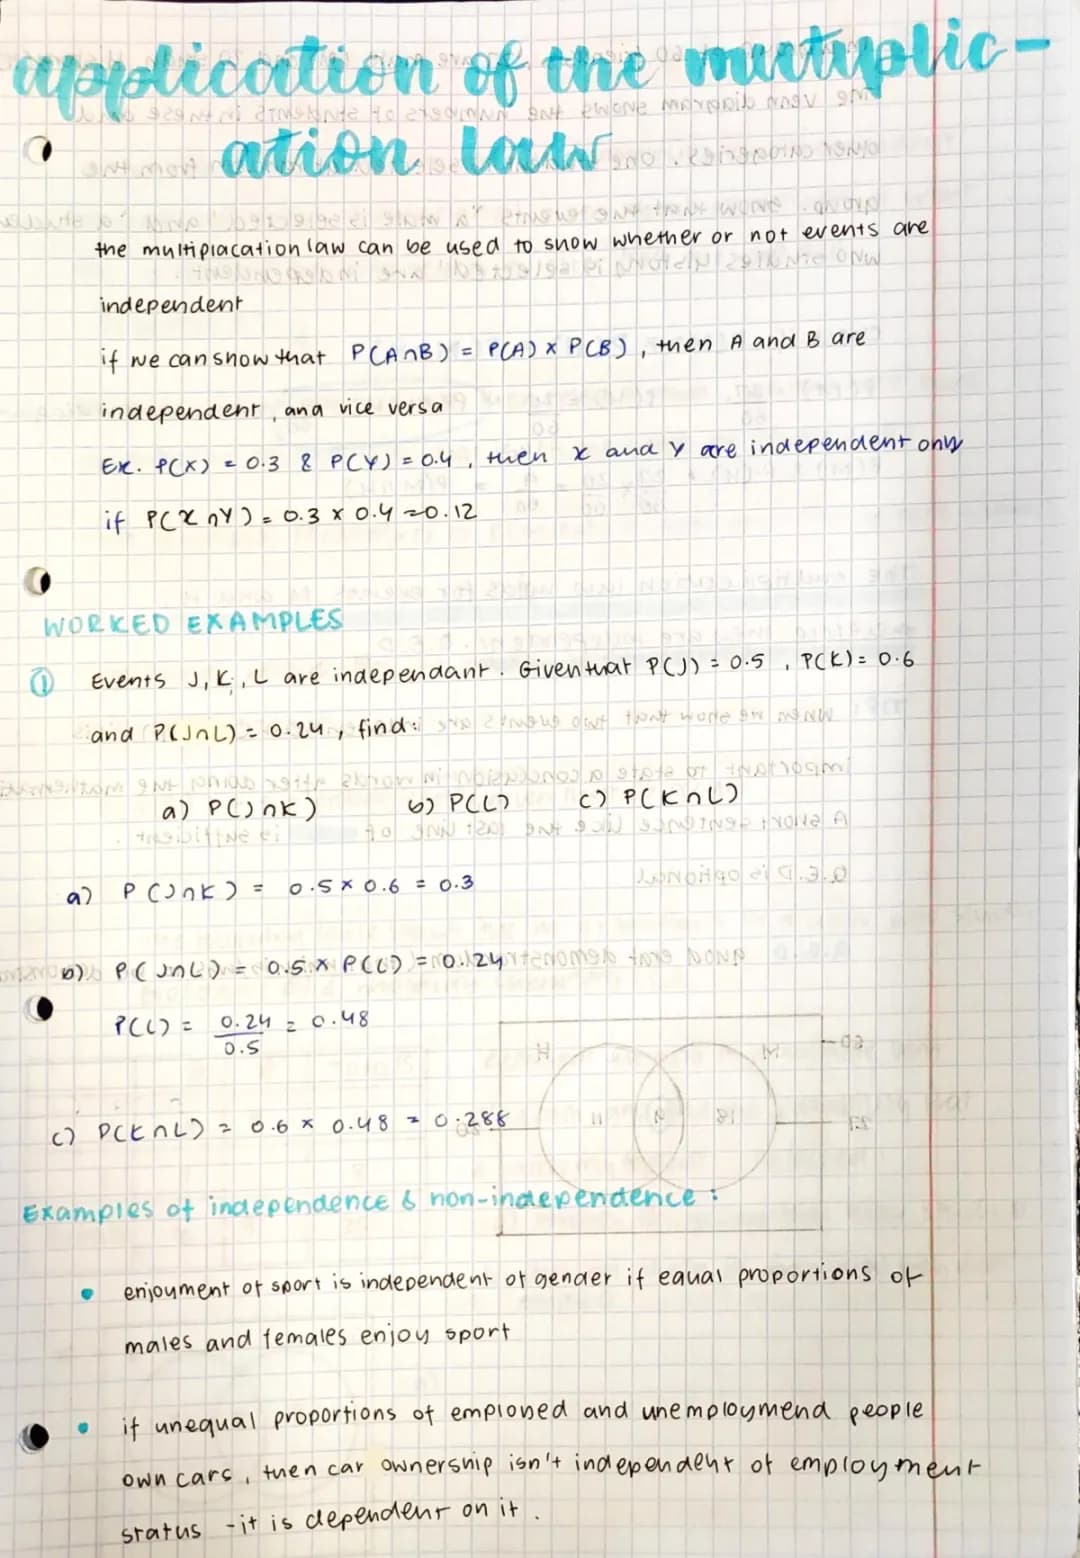 application of the multyplic-
ation law
the multiplacation law can be used to show whether or not events are
independent
if we can show that P(A∩B) = P(A) × P(B), then A and B are
independent, and vice versa
Ex. P(X) = 0.3 & P(Y) = 0.4, then x and y are independent only
if P(X∩Y) = 0.3 × 0.4 = 0.12
WORKED EXAMPLES
① Events J, K, L are independant. Given that P(J) = 0.5, P(K) = 0.6
and P(J∩L) = 0.24, find:
a) P(J∩K) b) P(L) c) P(K∩L)
a) P(J∩K) = 0.5 × 0.6 = 0.3
b) P(J∩L) = 0.5 × P(L) = 0.24
P(L) = 0.24/0.5 = 0.48
c) P(K∩L) = 0.6 × 0.48 = 0.288
Examples of independence & non-independence:
• enjoyment of sport is independent of gender if equal proportions of
males and females enjoy sport
• if unequal proportions of employed and unemploymend people
own cars, then car ownership isn't independent of employment
status - it is dependent on it.